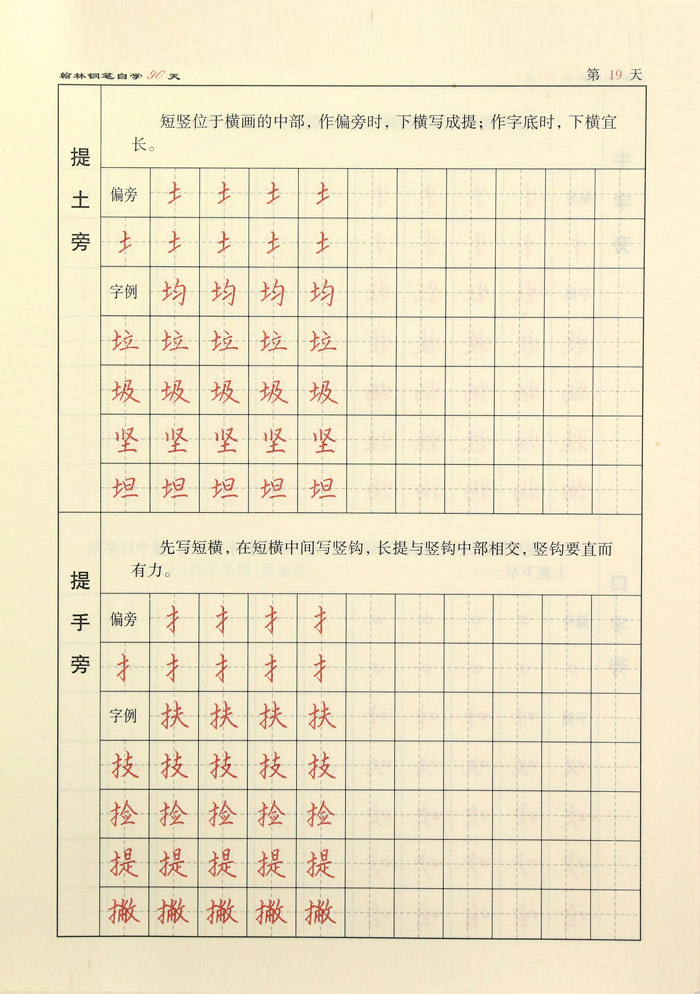 翰林钢笔自学90天
第 19 天
提土旁
短竖位于横画的中部，作偏旁时，下横写成提；作字底时，下横宜
长。
偏旁 扌 扌 扌 扌
土 土 土 土 土
字例 均 均 均 均
垃 垃 垃 垃 垃
圾 圾 圾 圾 圾
坚 坚 坚 坚 坚
坦 坦 坦 坦 坦
提手旁
先写短横，在短横中间写竖钩，长提与竖钩中部相交，竖钩要直而
有力。
偏旁 扌 扌 扌 扌
扌 扌 扌 扌 扌
字例 扶 扶 扶 扶
技 技 技 技 技
捡 捡 捡 捡 捡
提 提 提 提 提
撇 撇 撇 撇 撇